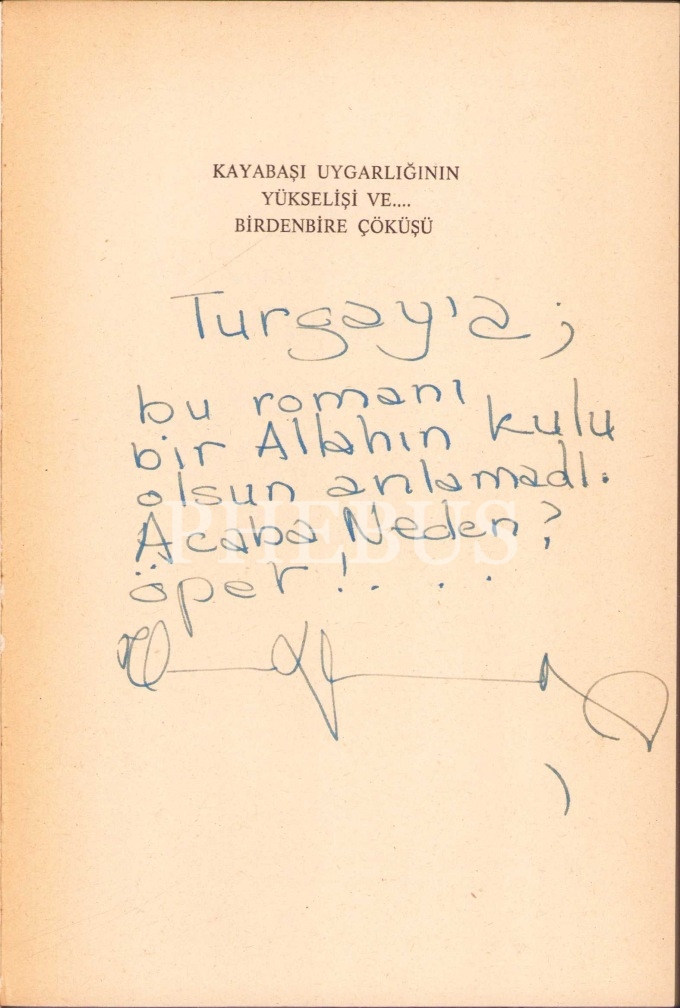 KAYABAŞI UYGARLIĞININ
YÜKSELİŞİ VE....
BİRDENBİRE ÇÖKÜŞÜ
Turgay'a;
bu romanı
bir Allahın kulu
olsun anlamadı.
Acaba Neden?
öper!. . .
PHEBUS